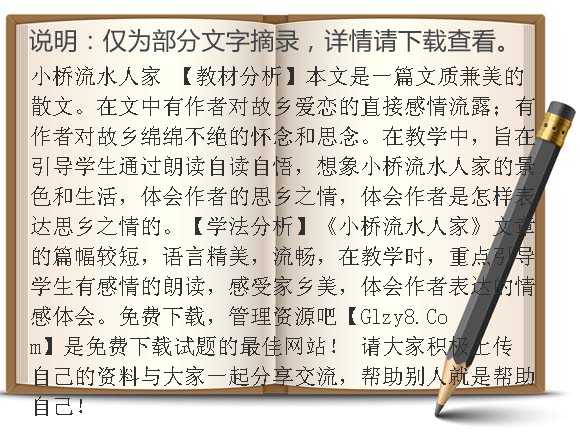 说明：仅为部分文字摘录，详情请下载查看。
小桥流水人家 【教材分析】本文是一篇文质兼美的
散文。在文中有作者对故乡爱恋的直接感情流露；有
作者对故乡绵绵不绝的怀念和思念。在教学中，旨在
引导学生通过朗读自读自悟，想象小桥流水人家的景
色和生活，体会作者的思乡之情，体会作者是怎样表
达思乡之情的。【学法分析】《小桥流水人家》文章
的篇幅较短，语言精美，流畅，在教学时，重点引导
学生有感情的朗读，感受家乡美，体会作者表达的情
感体会。免费下载，管理资源吧【Glzy8.Co
m】是免费下载试题的最佳网站！ 请大家积极上传
自己的资料与大家一起分享交流，帮助别人就是帮助
自己！